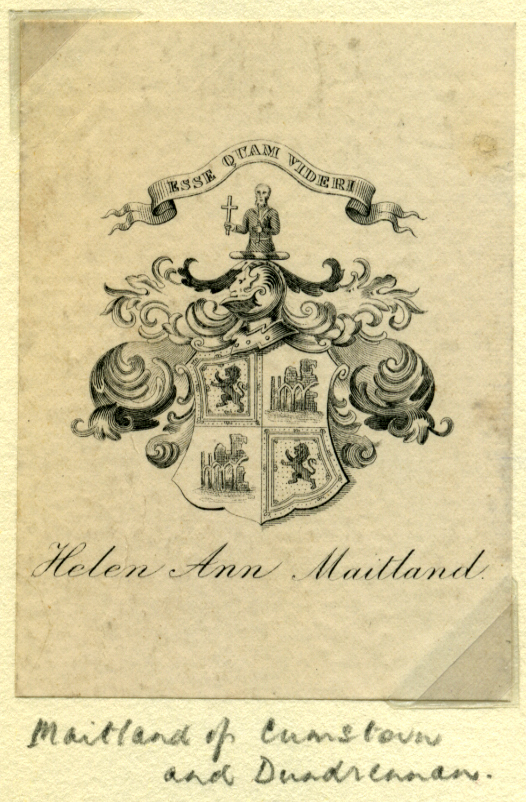 ESSE QUAM VIDERI
Helen Ann Maitland.
Maitland of Cumstoun
and Dundrennan.